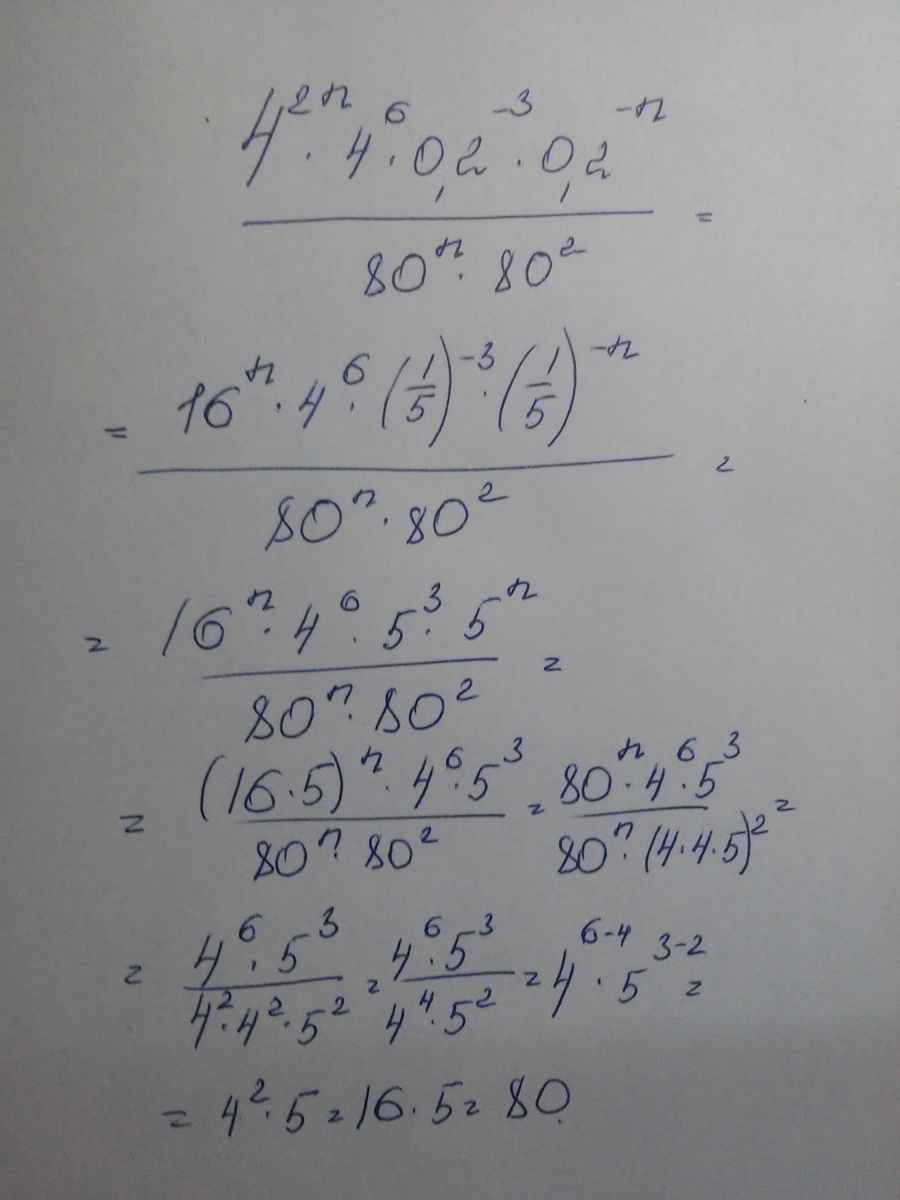 4^{2n} · 4^6 · 0,2^{-3} · 0,2^{-n} / 80^n · 80^2 =
= 16^n · 4^6 · (1/5)^{-3} · (1/5)^{-n} / 80^n · 80^2 =
= 16^n · 4^6 · 5^3 · 5^n / 80^n · 80^2 =
= (16·5)^n · 4^6 · 5^3 / 80^n · 80^2 = 80^n · 4^6 · 5^3 / 80^n · (4·4·5)^2 =
= 4^6 · 5^3 / 4^2 · 4^2 · 5^2 = 4^6 · 5^3 / 4^4 · 5^2 = 4^{6-4} · 5^{3-2} =
= 4^2 · 5 = 16 · 5 = 80.